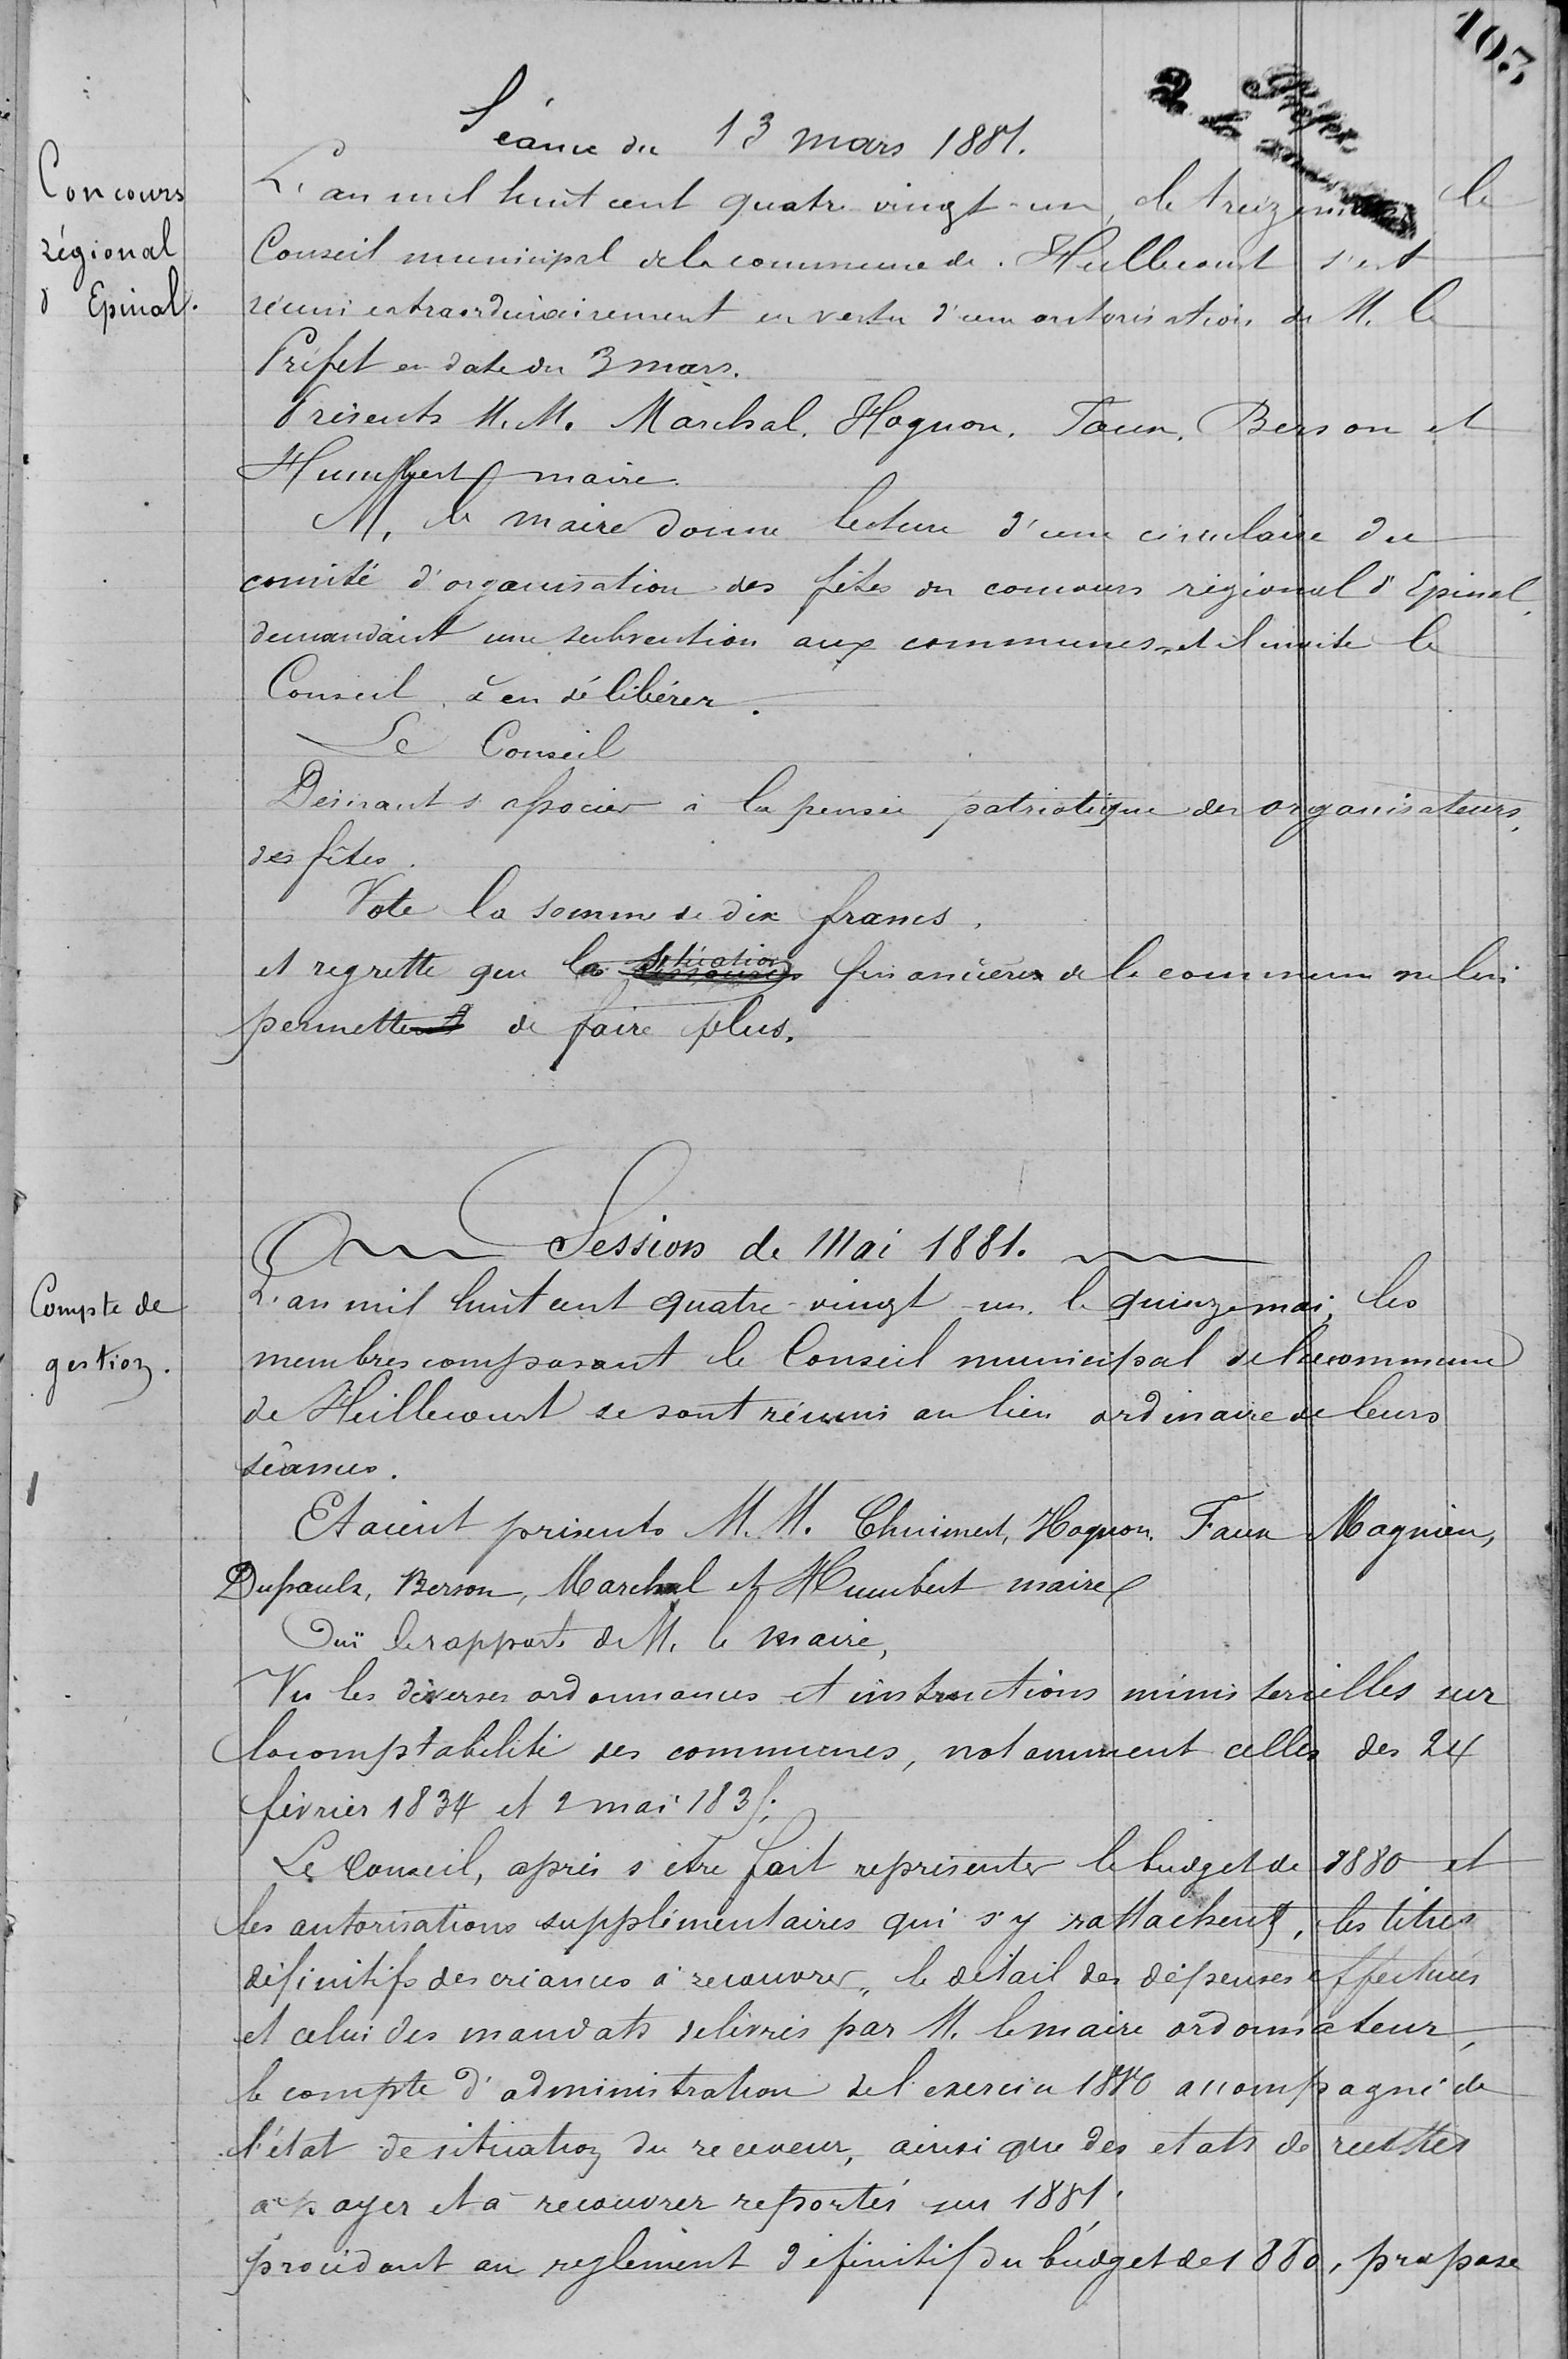 103
Séance du 13 mars 1881.
Concours
régional
d'Epinal.
L'an mil huit cent quatre-vingt-un, le treize mars le
Conseil municipal de la commune de Heillecourt s'est
réuni extraordinairement en vertu d'une autorisation de M. le
Préfet en date du 3 mars.
Présents M.M. Marchal, Hognon, Faux, Berson et
Humbert maire.
M. le maire donne lecture d'une circulaire du
comité d'organisation des fêtes du concours régional d'Epinal,
demandant une subvention aux communes, et il invite le
Conseil à en délibérer.
Le Conseil
Désirant s'associer à la pensée patriotique des organisateurs,
des fêtes.
Vote la somme de dix francs,
et regrette que la situation financière de la commune ne lui
permette de faire plus.
Session de Mai 1881.
Compte de
gestion.
L'an mil huit cent quatre-vingt-un, le quinze mai, les
membres composant le Conseil municipal de la commune
de Heillecourt se sont réunis au lieu ordinaire de leurs
séances.
Etaient présents M.M. Hognon, Faux Magnien,
Dupaulx, Berson, Marchal et Humbert maire
Ouï le rapport de M. le maire,
Vu les diverses ordonnances et instructions ministerielles sur
la comptabilité des communes, notamment celles des 24
février 1834 et 2 mai
Le Conseil, après s'être fait représenter le budget de 1880 et
les autorisations supplémentaires qui s'y rattachent, les titres
définitifs des créances à recouvrer, le détail des dépenses effectuées
et celui des mandats délivrés par M. le maire ordonnateur,
le compte d'administration de l'exercice 1880 accompagné de
l'état de situation du receveur, ainsi que des etats de recettes
à payer et à recouvrer reportés sur 1881,
procédant au réglement définitif du budget de 1880, propose